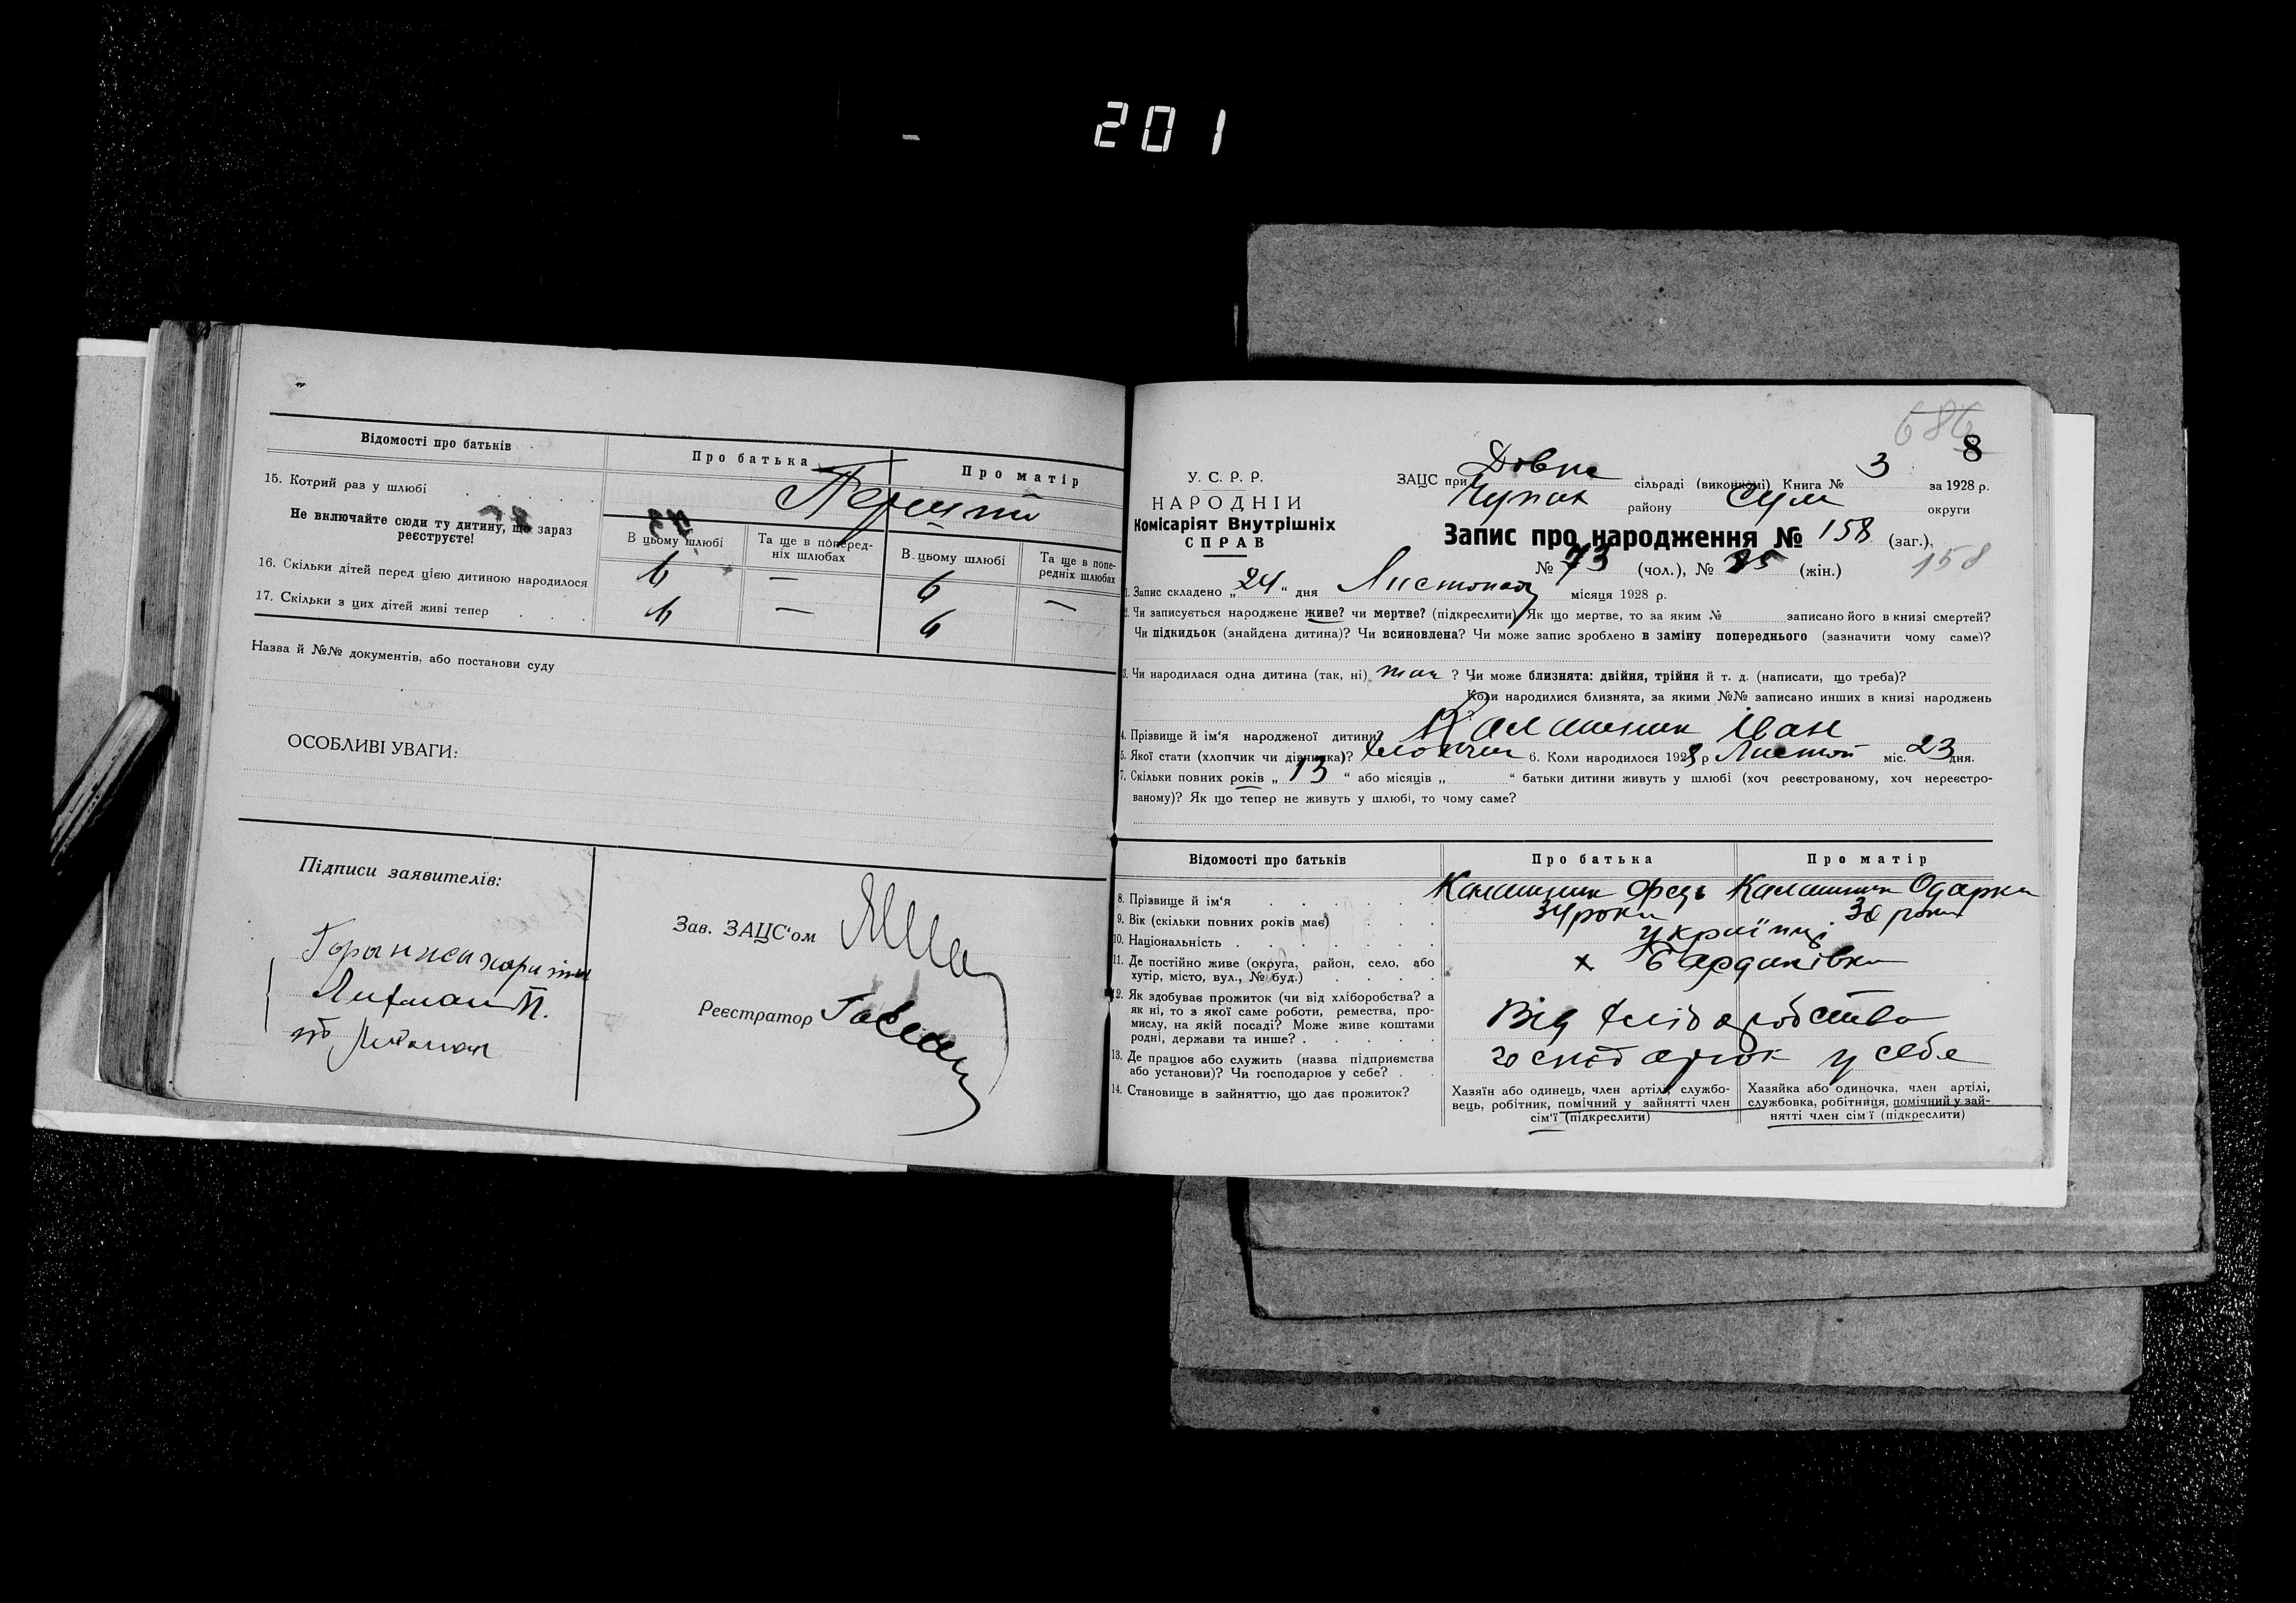 201
Відомості про батьків
Про батька
Про матір
15. Котрий раз у шлюбі
Не включайте сюди ту дитину, що зараз
реєструєте!
В цьому шлюбі
Та ще в поперед-
ніх шлюбах
В цьому шлюбі
Та ще в попе-
редніх шлюбах
16. Скільки дітей перед цією дитиною народилося
6 — 6 —
17. Скільки з цих дітей живі тепер
6 — 6
Назва й №№ документів, або постанови суду
ОСОБЛИВІ УВАГИ:
Підписи заявителів:
Зав. ЗАЦС'ом
Реєстратор
686
8
У. С. Р. Р.
НАРОДНІЙ
Комісаріят Внутрішніх
СПРАВ
ЗАЦС при сільраді (виконкомі) Книга № 3 за 1928 р.
Чупах району Сум округи
Запис про народження № 158 (заг.),
№ 73 (чол.), № 85 (жін.)
158
1. Запис складено „24“ дня Листопад місяця 1928 р.
2. Чи записується народжене живе? чи мертве? (підкреслити) Як що мертве, то за яким № записано його в книзі смертей?
Чи підкидьок (знайдена дитина)? Чи всиновлена? Чи може запис зроблено в заміну попереднього (зазначити чому саме)?
3. Чи народилася одна дитина (так, ні) так ? Чи може близнята: двійня, трійня й т. д. (написати, що треба)?
Коли народилися близнята, за якими №№ записано инших в книзі народжень
4. Прізвище й ім'я народженої дитини? Калашник Іван
5. Якої стати (хлопчик чи дівчинка)? хлопчик 6. Коли народилося 1928 р Листоп міс. 23 дня.
7. Скільки повних років „13“ або місяців „ “ батьки дитини живуть у шлюбі (хоч реєстрованому, хоч нереєстро-
ваному)? Як що тепер не живуть у шлюбі, то чому саме?
Відомості про батьків
Про батька
Про матір
8. Прізвище й ім'я
Калашник Федь Калашник Одарка
9. Вік (скільки повних років має)
34 роки
роки
10. Національність
українці
11. Де постійно живе (округа, район, село, або
хутір, місто, вул., № буд.)
х Бардаківка
12. Як здобуває прожиток (чи від хліборобства? а
як ні, то з якої саме роботи, ремества, про-
мислу, на якій посаді? Може живе коштами
родні, держави та инше?
Від хліборобства
13. Де працює або служить (назва підприємства
або установи)? Чи господарює у себе?
господарюк у себе
14. Становище в зайняттю, що дає прожиток?
Хазяїн або одинець, член артілі, службо-
вець, робітник, помічний у зайнятті член
сім'ї (підкреслити)
Хазяйка або одиночка, член артілі,
службовка, робітниця, помічний у зай-
нятті член сім'ї (підкреслити)